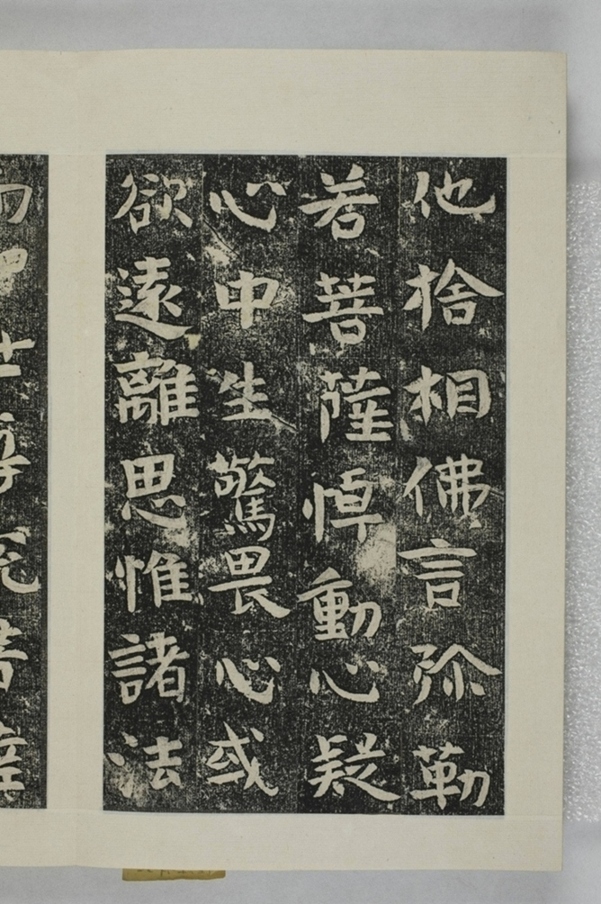 他捨相佛言弥勒
若菩薩悼動心疑
心中生驚畏心或
欲遠離思惟諸法